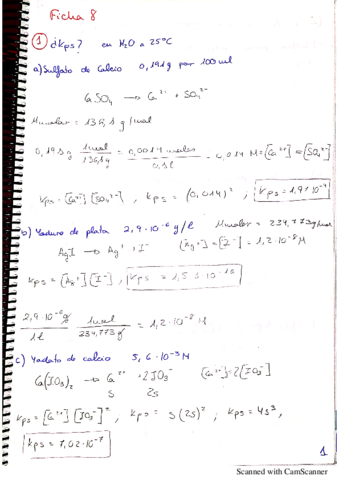 Ficha 8
① ¿Kps? en H₂O a 25°C
a) Sulfato de Calcio 0,191 g por 100 ml
CaSO₄ → Ca²⁺ + SO₄²⁻
Mmolar = 136,1 g/mol
0,191 g 1 mol / 136,1 g = 0,0014 moles / 0,1 l = 0,014 M = [Ca²⁺] = [SO₄²⁻]
Kps = [Ca²⁺] [SO₄²⁻], Kps = (0,014)², Kps = 1,97·10⁻⁴
b) Yoduro de plata 2,9·10⁻⁶ g/l Mmolar = 234,773 g/mol
AgI → Ag⁺ + I⁻ [Ag⁺] = [I⁻] = 1,2·10⁻⁸ M
Kps = [Ag⁺] [I⁻], Kps = 1,53·10⁻¹⁶
2,9·10⁻⁶ g / 1 l 1 mol / 234,773 g = 1,2·10⁻⁸ M
c) Yodato de calcio 5,6·10⁻³ M
Ca(IO₃)₂ → Ca²⁺ + 2IO₃⁻ [Ca²⁺] = 2[IO₃⁻]
s 2s
Kps = [Ca²⁺] [IO₃⁻]², Kps = s(2s)²; Kps = 4s³,
Kps = 7,02·10⁻⁷
1
Scanned with CamScanner